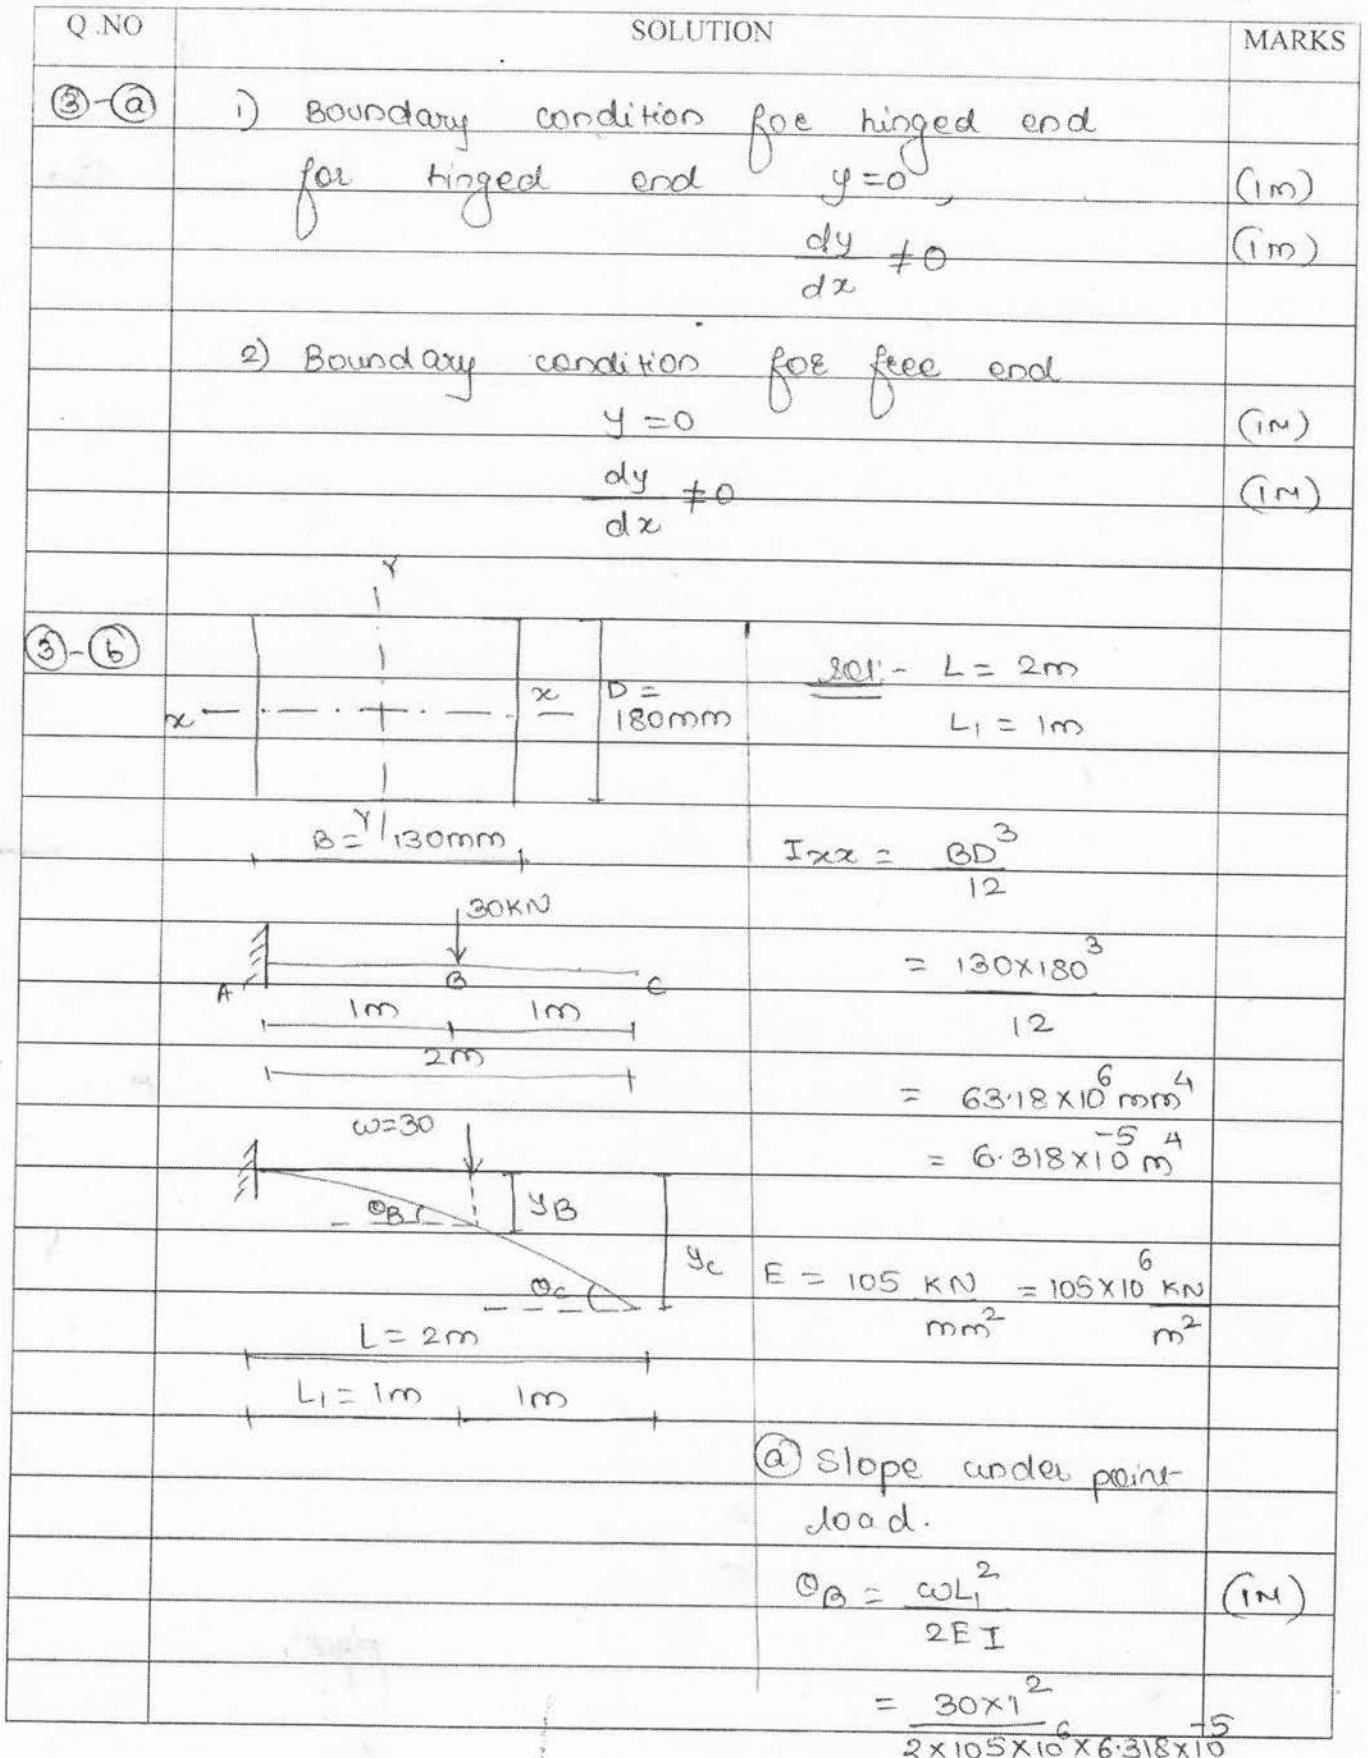 Q.NO SOLUTION MARKS
3-a 1) Boundary condition foe hinged end
for hinged end y=0, (1m)
dy/dx ≠0 (1m)
2) Boundary condition foe free end
y=0 (1M)
dy/dx ≠0 (1M)
3-b
Y
x x D= 180mm
Y
B= 130mm
30KN
A B C
1m 1m
2m
w=30
θB yB
θc yc
L=2m
L1=1m 1m
sol:- L= 2m
L1 = 1m
Ixx = BD³/12
= 130x180³/12
= 63.18x10⁶ mm⁴
= 6.318x10⁻⁵ m⁴
E = 105 KN/mm² = 105x10⁶ KN/m²
a Slope under point
load.
θB = wL1²/2EI (1M)
= 30x1²/2x105x10⁶x6.318x10⁻⁵